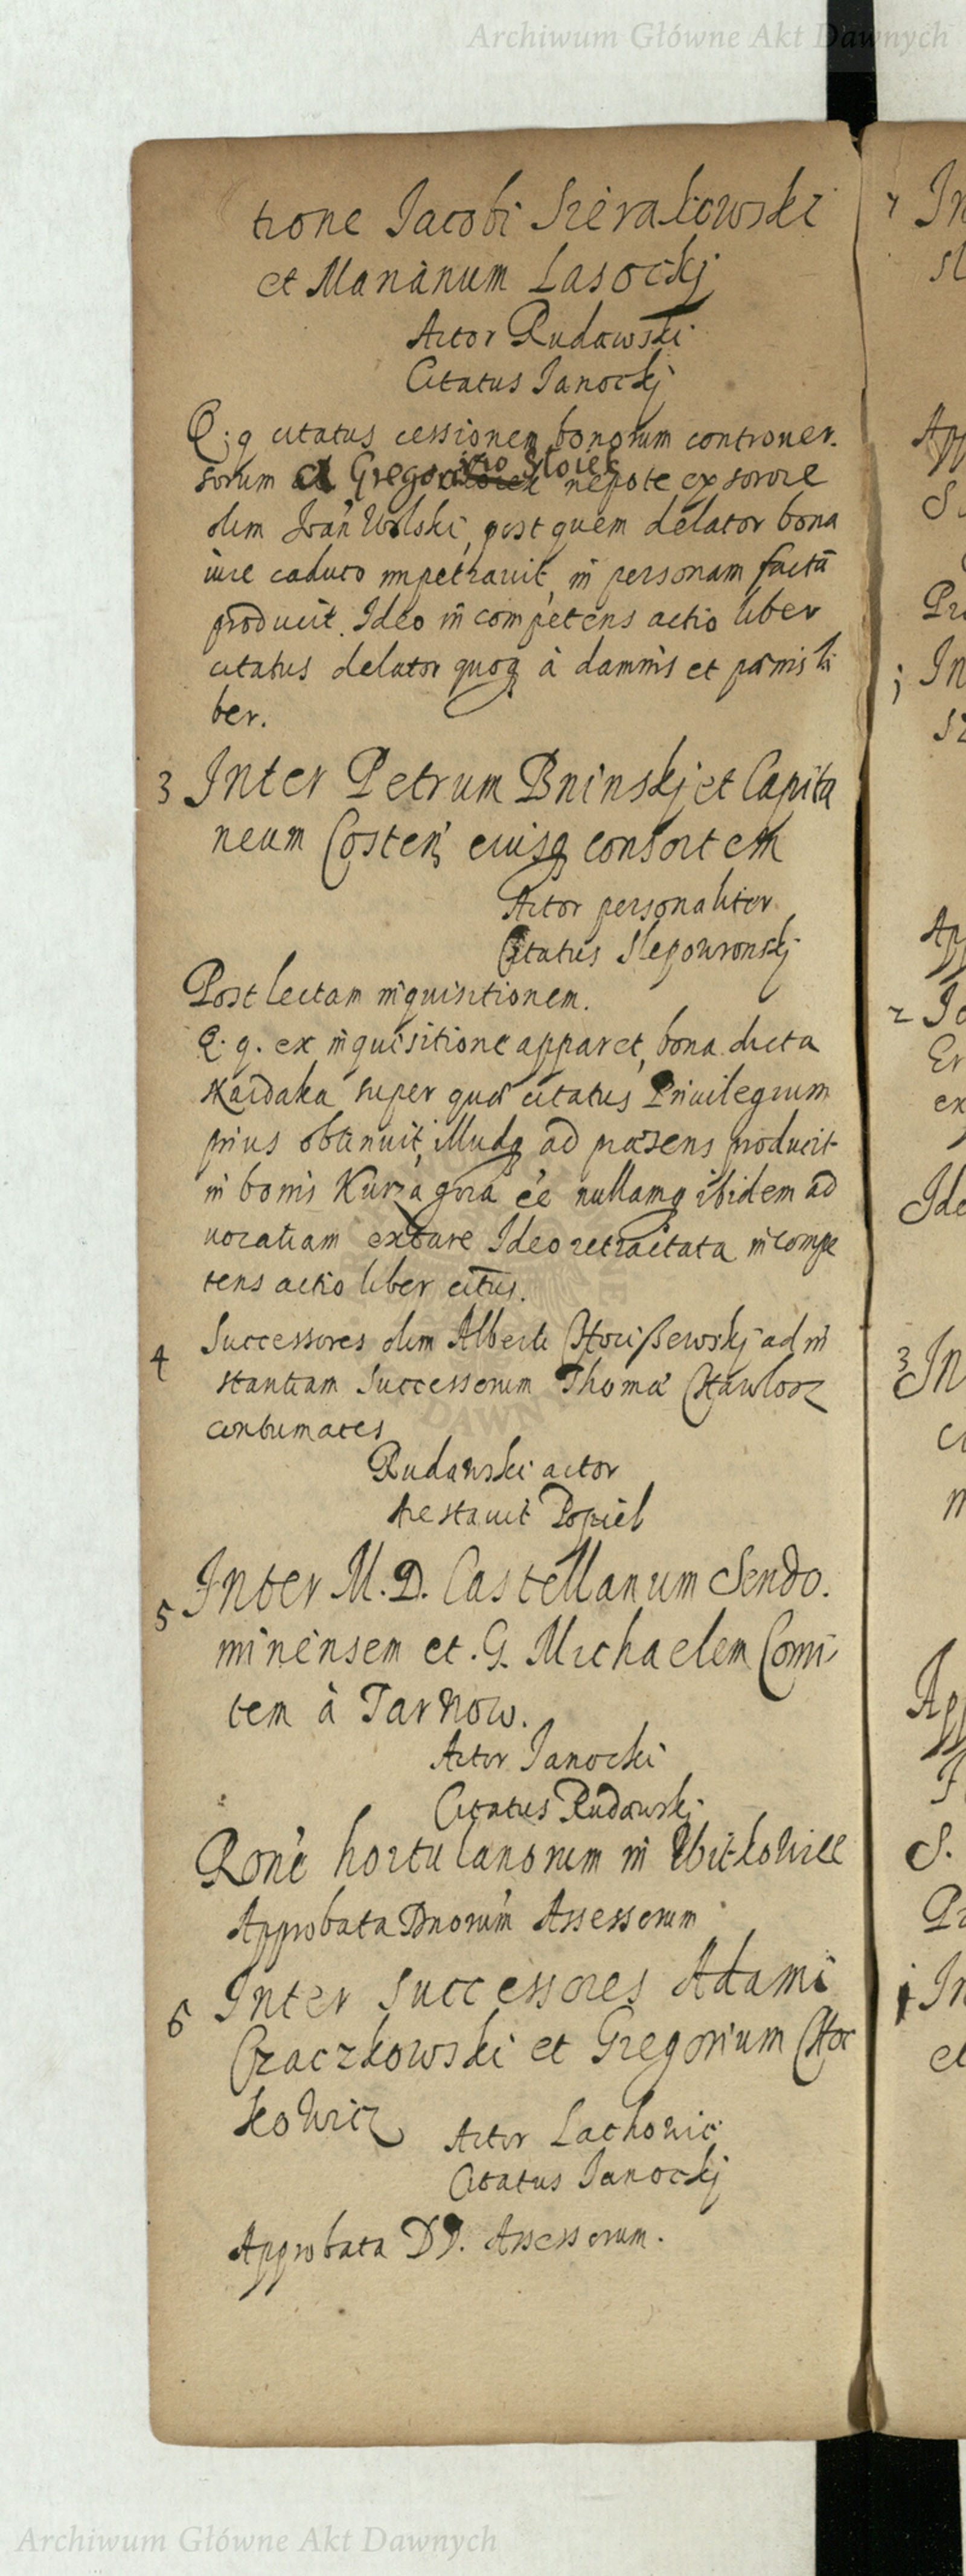 Archiwum Główne Akt Dawnych
tione Jacobi Sierakowski
et Marianum Lasockj
Actor Rudawski
Citatus Janockj
Q; q citatus cessionem bonorum controuer.
sorum a Gregorio Sloiek nepote ex sorore
olim Iwan Wolski, post quem delator bona
iure caduco impetrauit, in personam factā
producit. Ideo incompetens actio liber
citatus delator quoq à damnis et pœnis li
ber.
3 Inter Petrum Bninskj et Capita
neum Costen̄ eiusq consortem
Actor personaliter
Citatus Slepowronskj
Post lectam inquisitionem.
Q. q. ex inquisitione apparet, bona dicta
Kaidaka super quæ citatus Priuilegium
prius obtinuit, illudq ad præsens producit
in bonis Kurza gora ēē nullamq ibidem ad
uocatiam extare Ideo retractata incompe
tens actio liber cit̄us.
4 Successores olim Alberti ad in
stantiam Successorum Thomæ
contumaces
Rudawski actor
Arestauit Popiel
5 Inter M. D. Castellanum Sendo.
miriensem et. G. Michaelem Comi
tem à Tarnow.
Actor Janocki
Citatus Rudowski
Rone hortulanorum in Witkowice
Approbata Dnorum Assessorum
6 Inter Successores Adami
Czaczkowski et Gregorium Choc
kowicz
Actor Lachowic
Citatus Janockj
Approbata DD. Assessorum.
Archiwum Główne Akt Dawnych